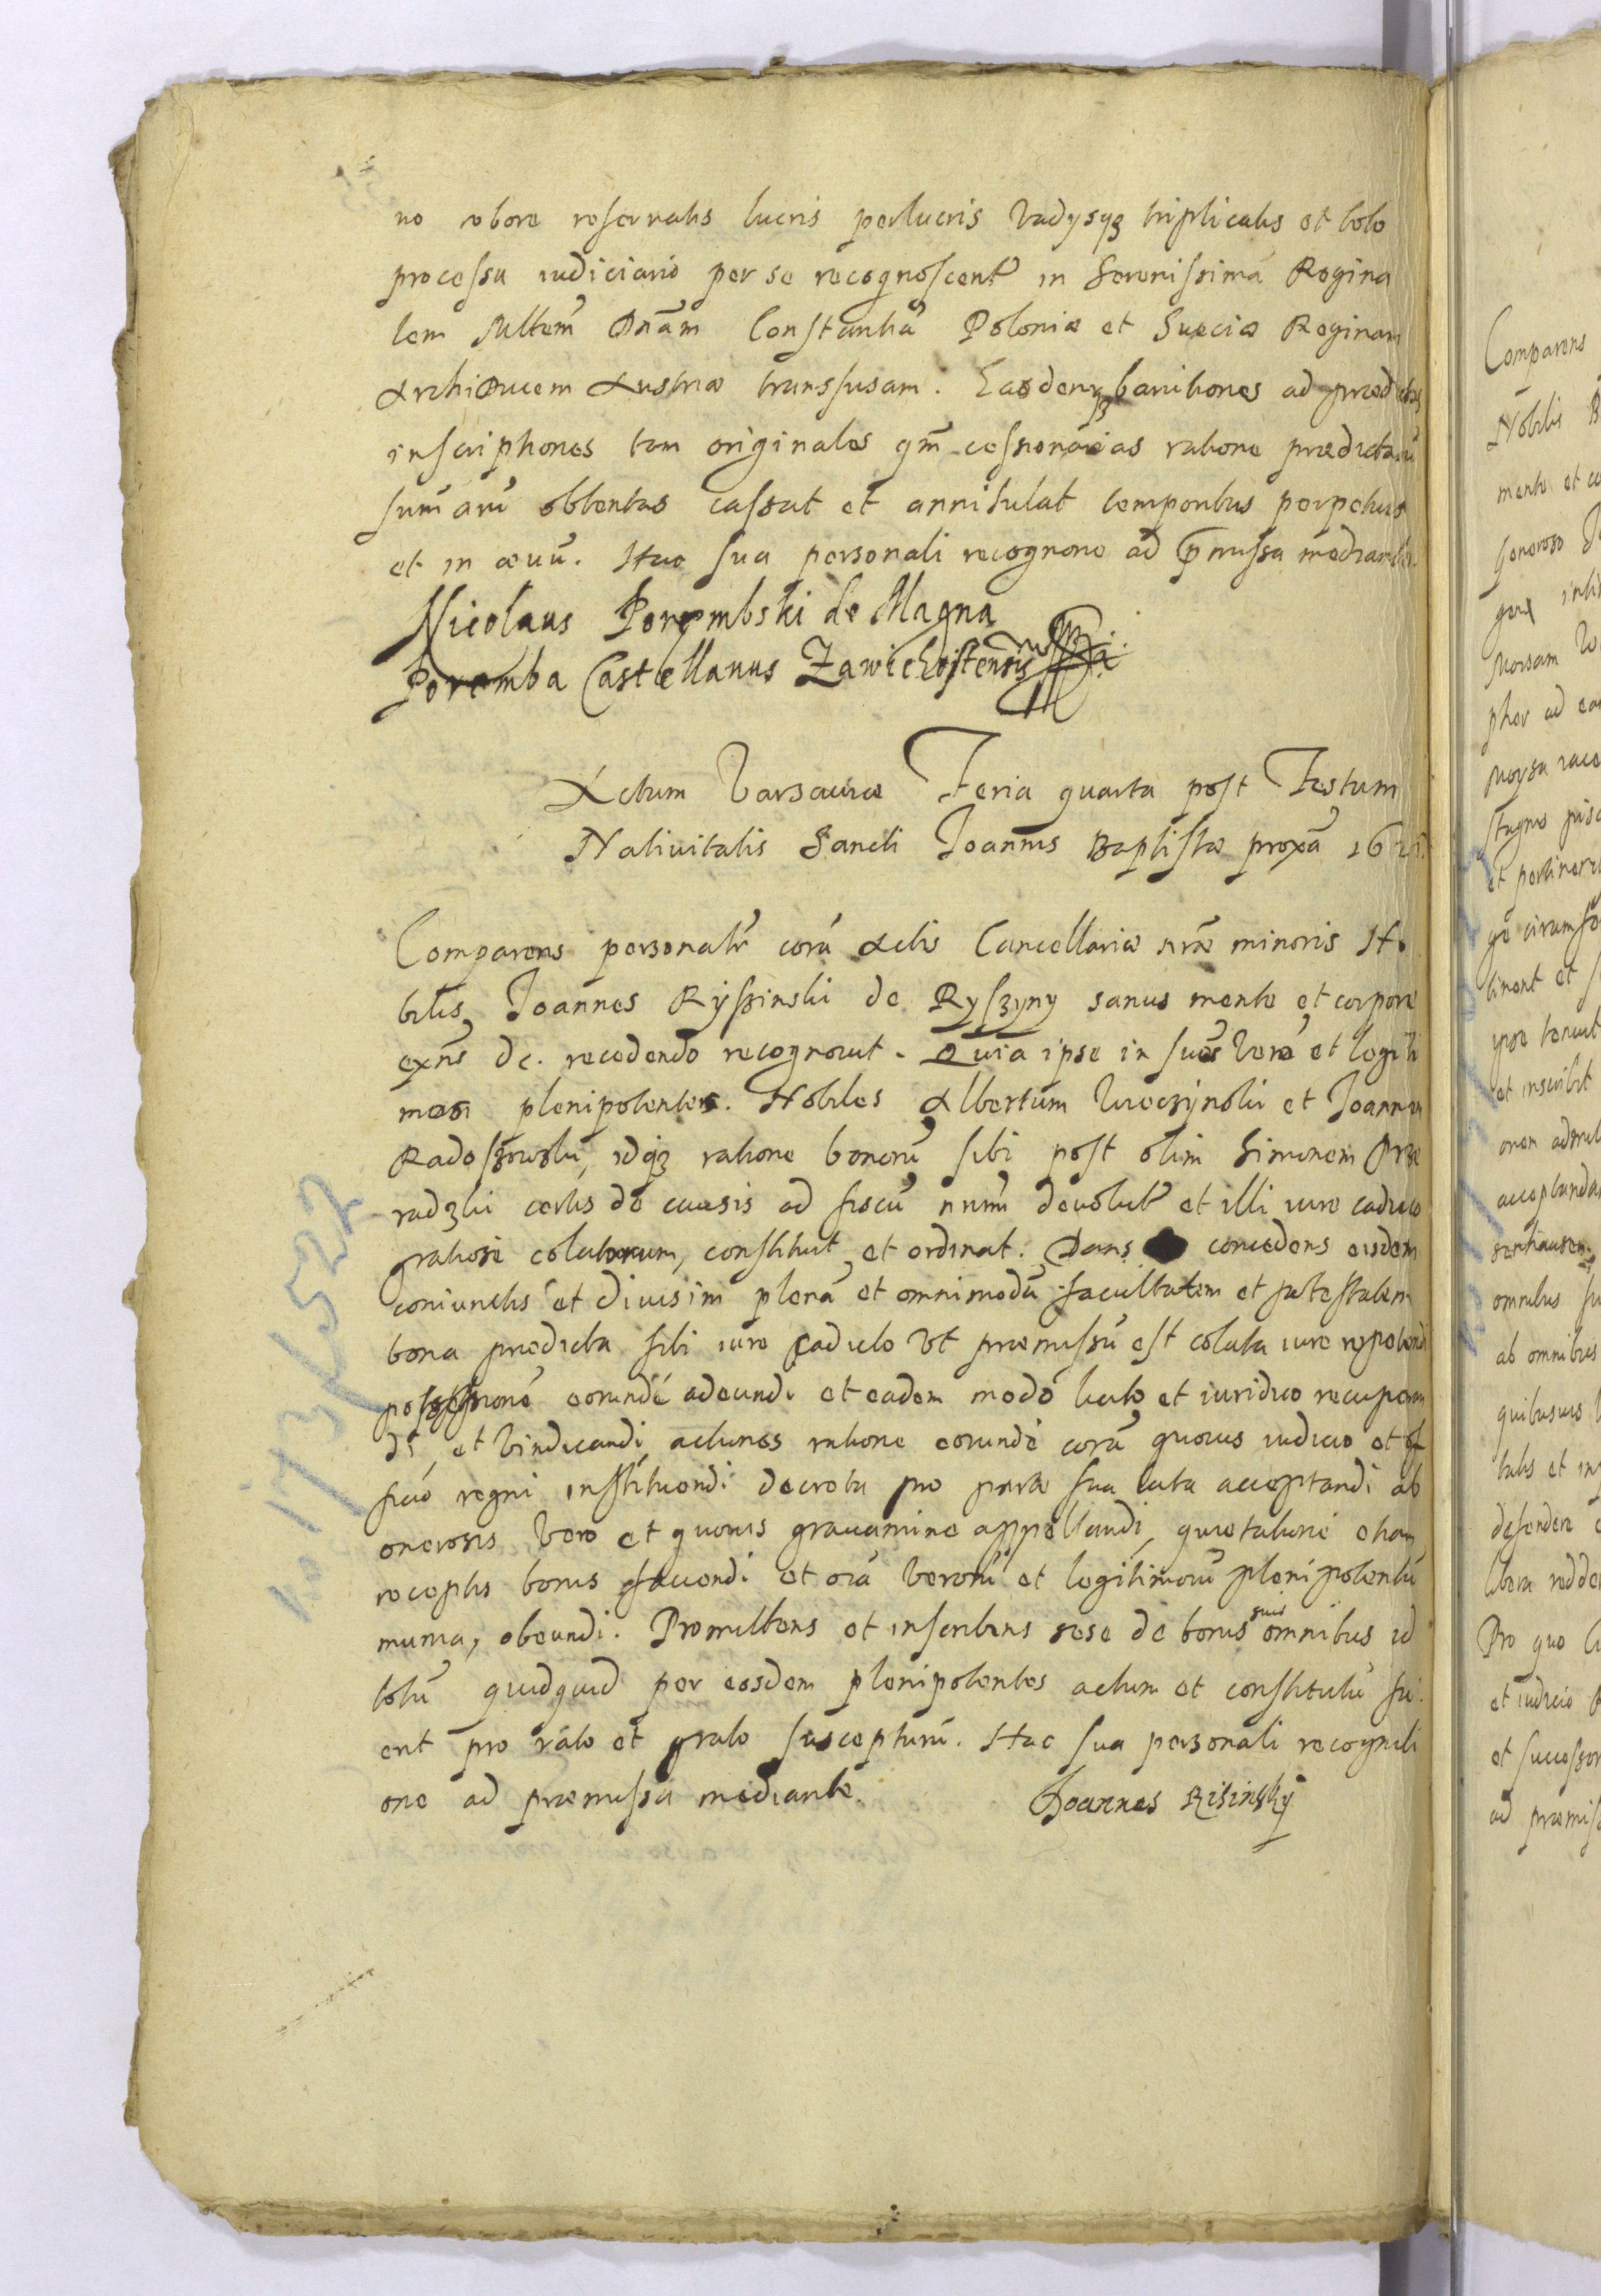 no robore reservatis lucris perlucris vadysqz triplicatis et toto
processu iudiciario per se recognoscentẽ in Serenissimã Regina
lem Mttem Dnãm Constantiã Poloniæ et Sueciæ Reginam
Archiducem Austriæ transfusam. Easdemqz banitiones ad prædictas
inscriptiones tam originales qm̃ cessionarias ratione prædictarũ
sum̃arũ obtentas cassat et annihilat temporibus perpetuis
et in æuũ. Hac sua personali recognone ad p̃missa mediante.
Nicolaus Porembski de Magna
Poremba Castellanus Zawichostensis
Actum Varsauiæ Feria quarta post Festum
Natiuitatis Sancti Joannis Baptistæ proxã 162
Comparens personalr̃ corã Actis Cancellariæ nrãe minoris No
bilis Joannes Ryszinski de Ryszyny sanus mente et corpore
exñs &c. recedendo recognouit. Quia ipse in suos veros et legiti
mos plenipotentes. Nobiles Albertum et Joannem
idqz ratione bonorũ sibi post olim Simonem Prze
radzki certis de causis ad fiscũ nrum̃ deuolut et illi iure caduco
gratiose colatorum, constituit et ordinat. Dans concedens eisdem
coniunctis et diuisim plenã et omnimodã facultatem et potestatem
bona prædicta sibi iure caduco vt præmissũ est colata iure repetendi
possessionẽ eorundẽ adeundi et eadem modo licito et iuridico recuperan
di et vindicandi actiones ratione eorundẽ corã quouis iudicio et of
ficio regni instituendi decreta pro parte sua lata acceptandi ab
onerosis vero et quouis grauamine appellandi, quietationẽ etiam
receptis bonis faciendi et oĩa verorũ et legitimorũ plenipotentũ
munia, obeundi. Promittens et inscribens sese de bonis suis omnibus id
totũ quidquid per eosdem plenipotentes actum et constitutũ fu
erit pro rato et grato suscepturũ. Hac sua personali recogniti
one ad præmissa mediante. Joannes Risinsky
Comparens
Nobilis
mente et co
Generoso
phor ad ea
et pertinen
tinent et
et inscribit
acceptanda
omnibus
ab omnibus
quibusuis
talis et in
defendere
libera redde
Pro quo
et iudicio
et successor
ad præmiss